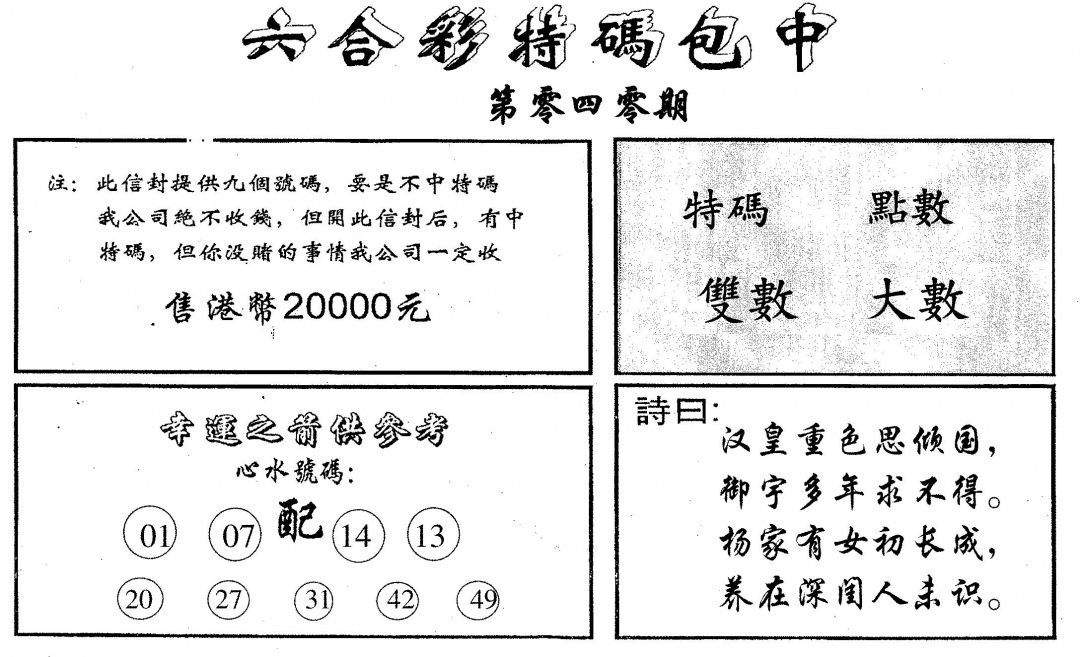 六合彩特碼包中
第零四零期
注：此信封提供九個號碼，要是不中特碼
我公司絕不收錢，但開此信封后，有中
特碼，但你没賭的事情我公司一定收
售港幣20000元
特碼 點數
雙數 大數
幸運之箭供參考
心水號碼：
01 07 配 14 13
20 27 31 42 49
詩曰：
汉皇重色思倾国，
御宇多年求不得。
杨家有女初长成，
养在深闺人未识。